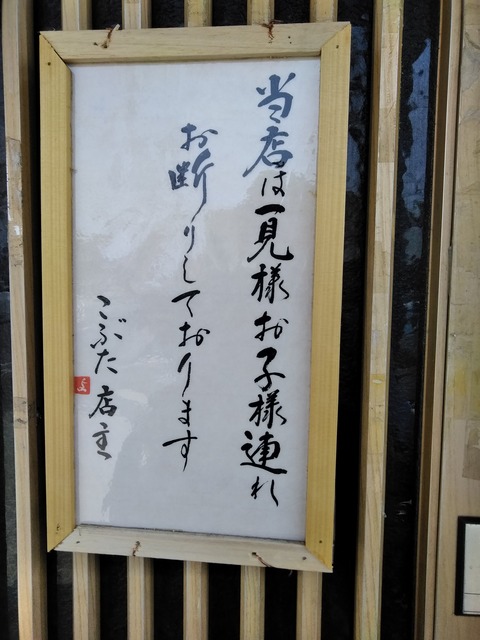 当店は一見様お子様連れ
お断りしております
こぶた店主